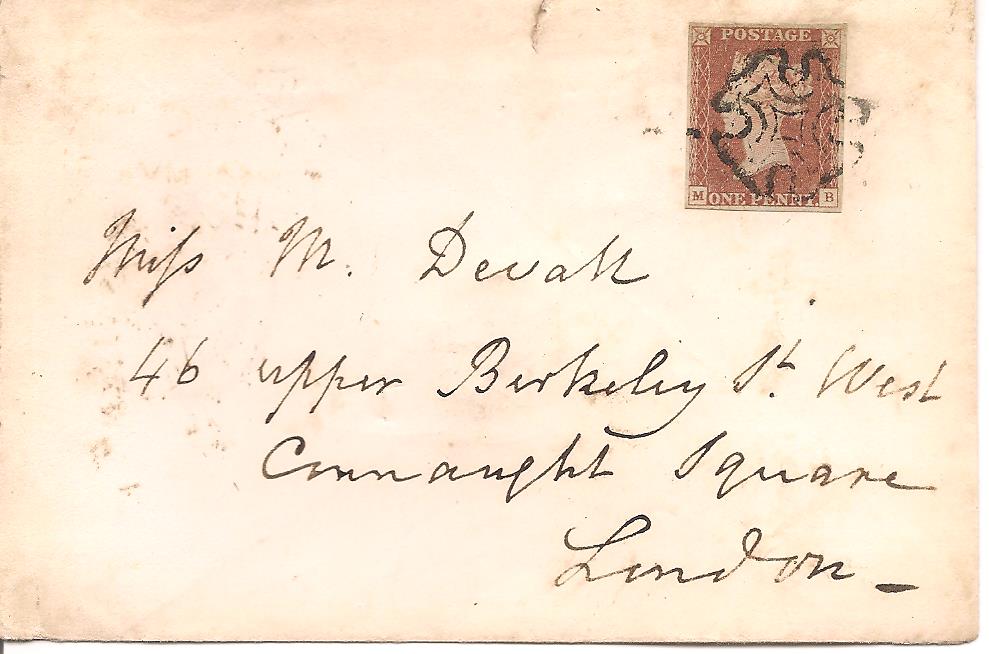 POSTAGE
M ONE PENNY B
Miss M. Devall
46 upper Berkeley St. West
Connaught Square
London